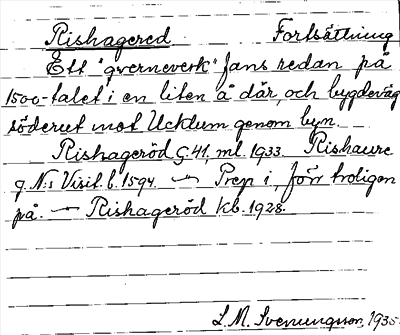 Rishagered Fortsättning
Ett "qverneverk" fans redan på
1500-talet i en liten å där, och bygdeväg
söderut mot Ucklum genom byn.
Rishageröd G.41, ml. 1933. Rishaure
g. N:s Visit. b. 1594. — Prep i, förr troligen
på. — Rishageröd kb. 1928.
L.M. Svenungsson, 1935.